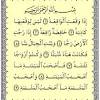 بِسْمِ اللَّهِ الرَّحْمَٰنِ الرَّحِيمِ
إِذَا وَقَعَتِ الْوَاقِعَةُ ۝ لَيْسَ لِوَقْعَتِهَا
كَاذِبَةٌ ۝ خَافِضَةٌ رَافِعَةٌ ۝ إِذَا رُجَّتِ
الْأَرْضُ رَجًّا ۝ وَبُسَّتِ الْجِبَالُ بَسًّا ۝
فَكَانَتْ هَبَاءً مُنْبَثًّا ۝ وَكُنْتُمْ أَزْوَاجًا
ثَلَاثَةً ۝ فَأَصْحَابُ الْمَيْمَنَةِ مَا أَصْحَابُ
الْمَيْمَنَةِ ۝ وَأَصْحَابُ الْمَشْأَمَةِ مَا أَصْحَابُ